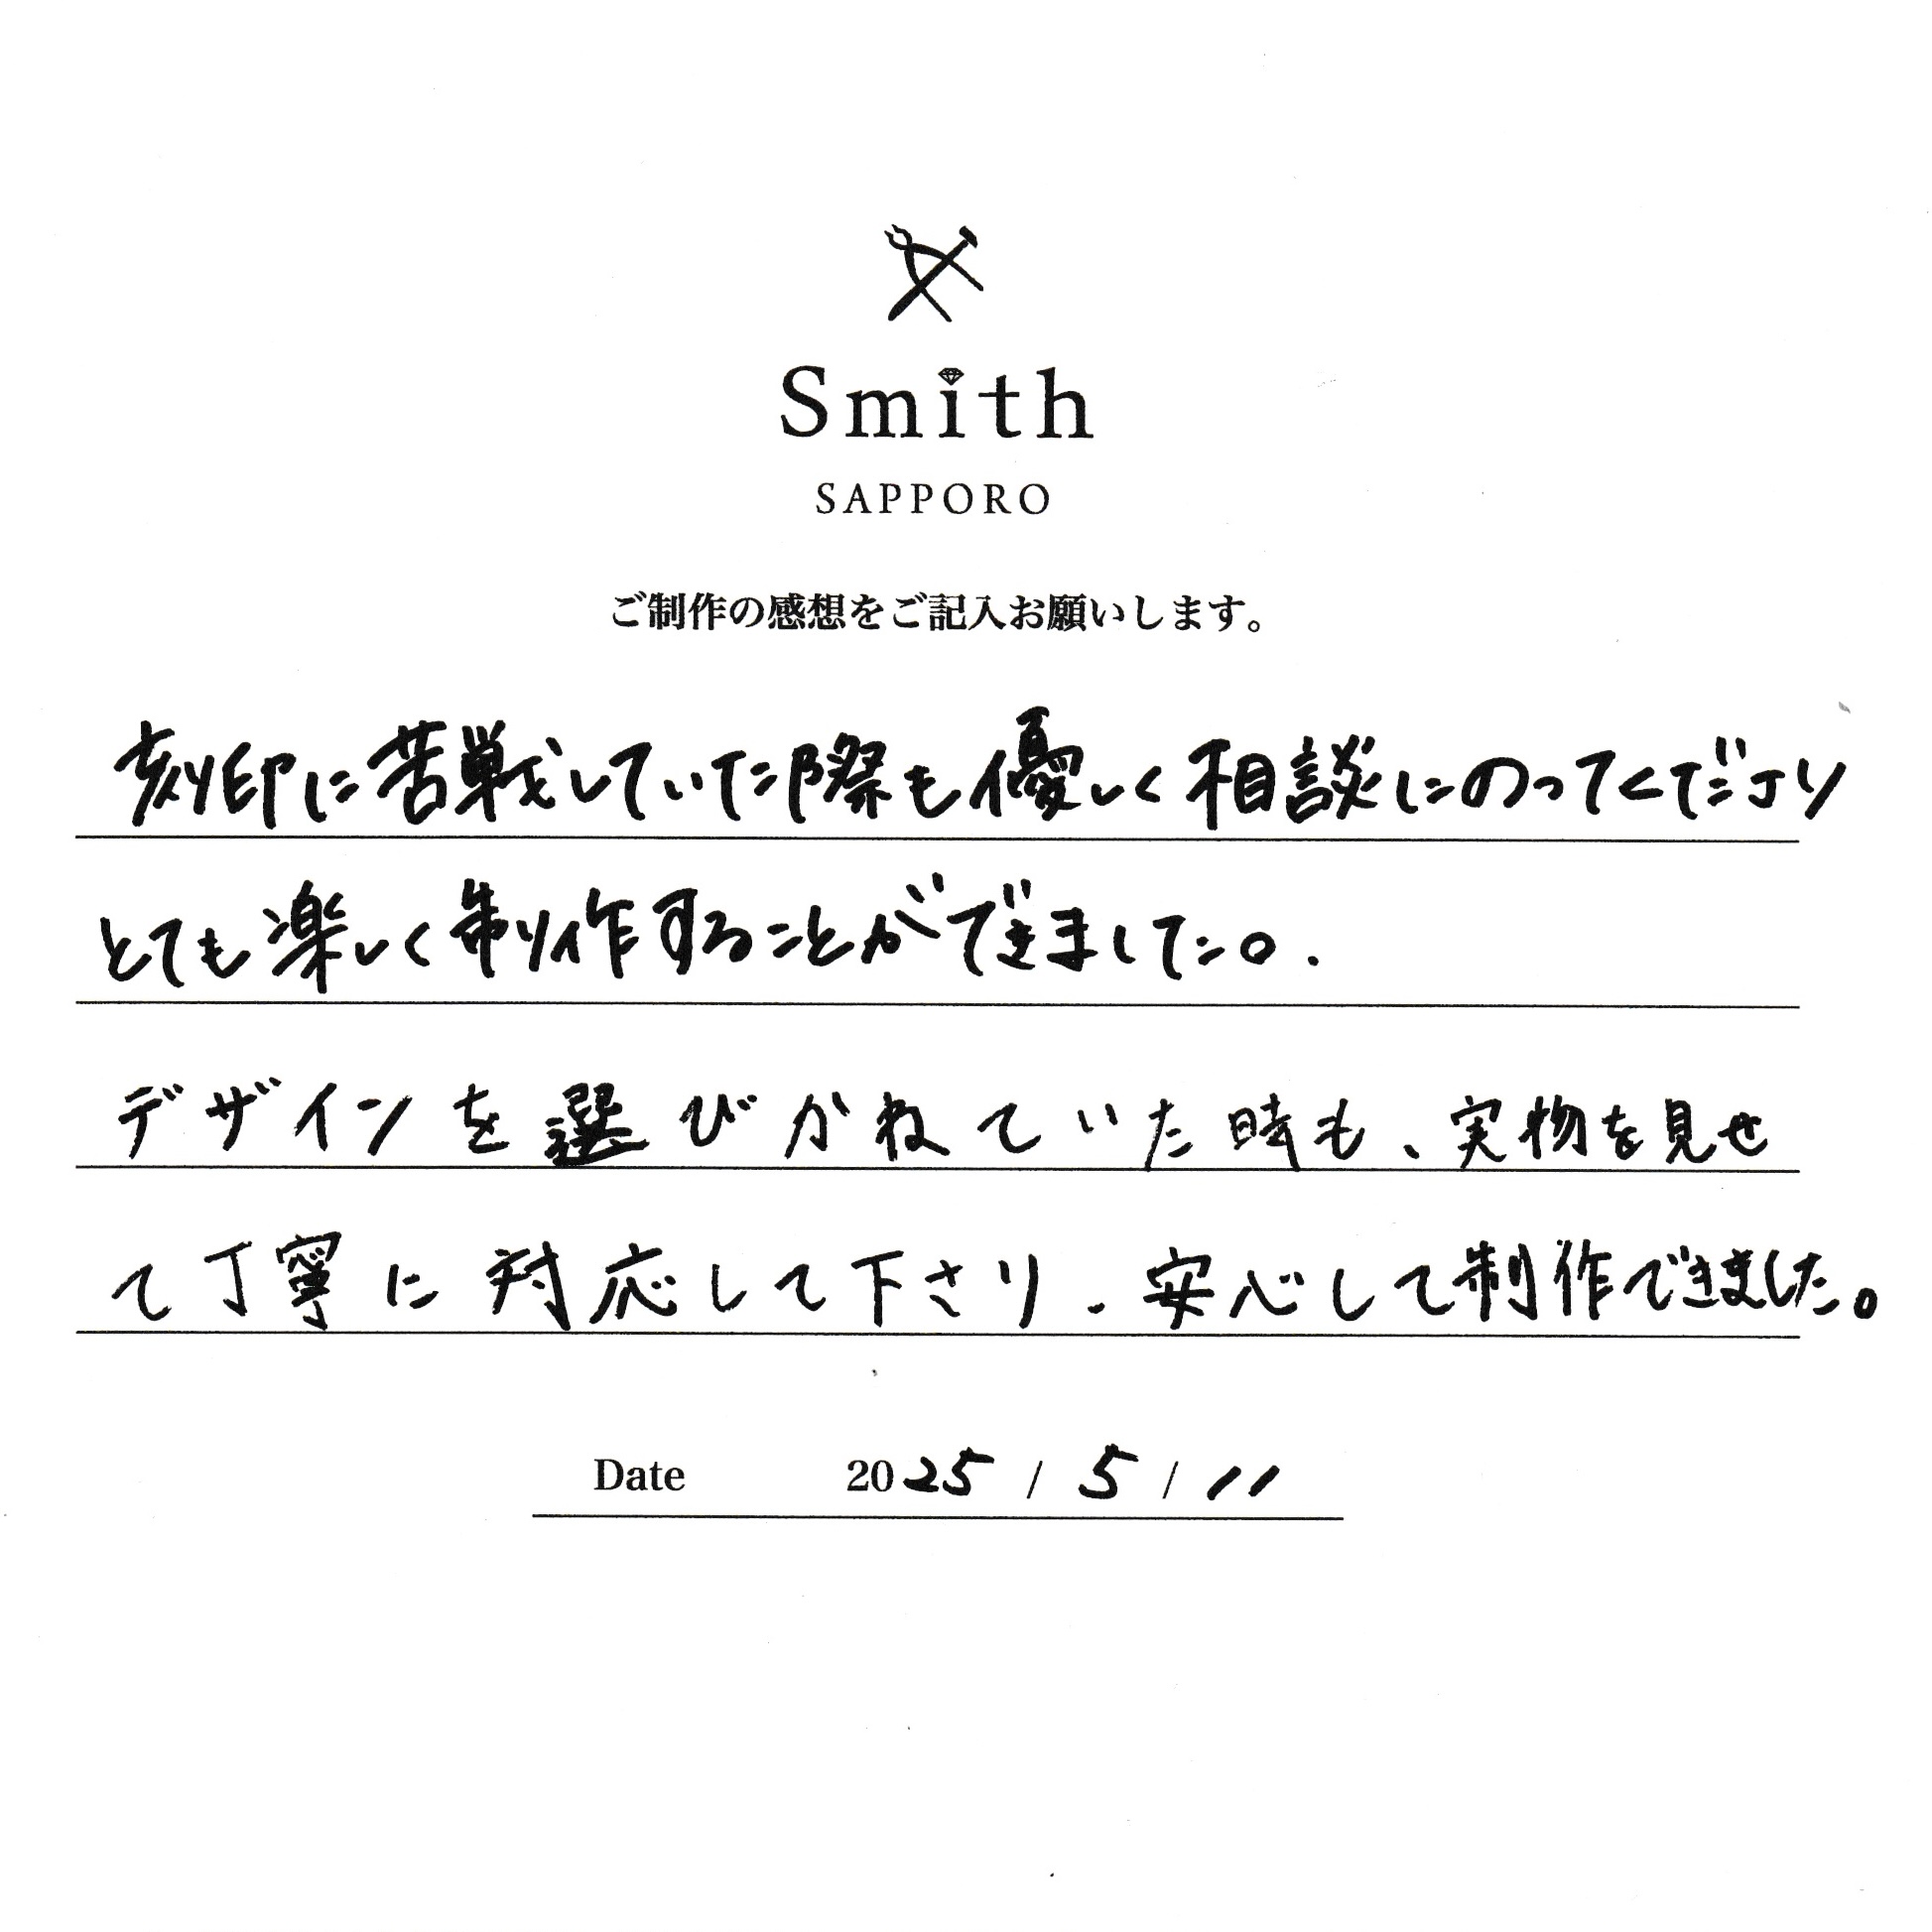 Smith
SAPPORO
ご制作の感想をご記入お願いします。
刻印に苦戦していた際も優しく相談にのってくださり
とても楽しく制作することができました。.
デザインを選びかねていた時も、実物を見せ
て丁寧に対応して下さり、安心して制作できました。
Date 2025 / 5 / 11